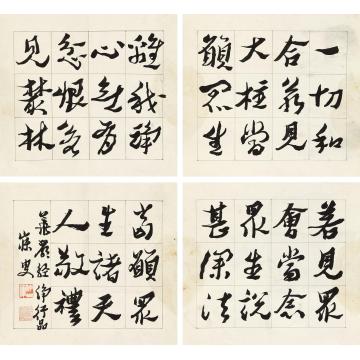 若見眾
會當念
眾生說
甚深法
一切和
合若見
大柱當
願眾生
離我諍
心無有
忿恨若
見叢林
當願眾
生諸天
人敬禮
華嚴經淨行品
寐叟